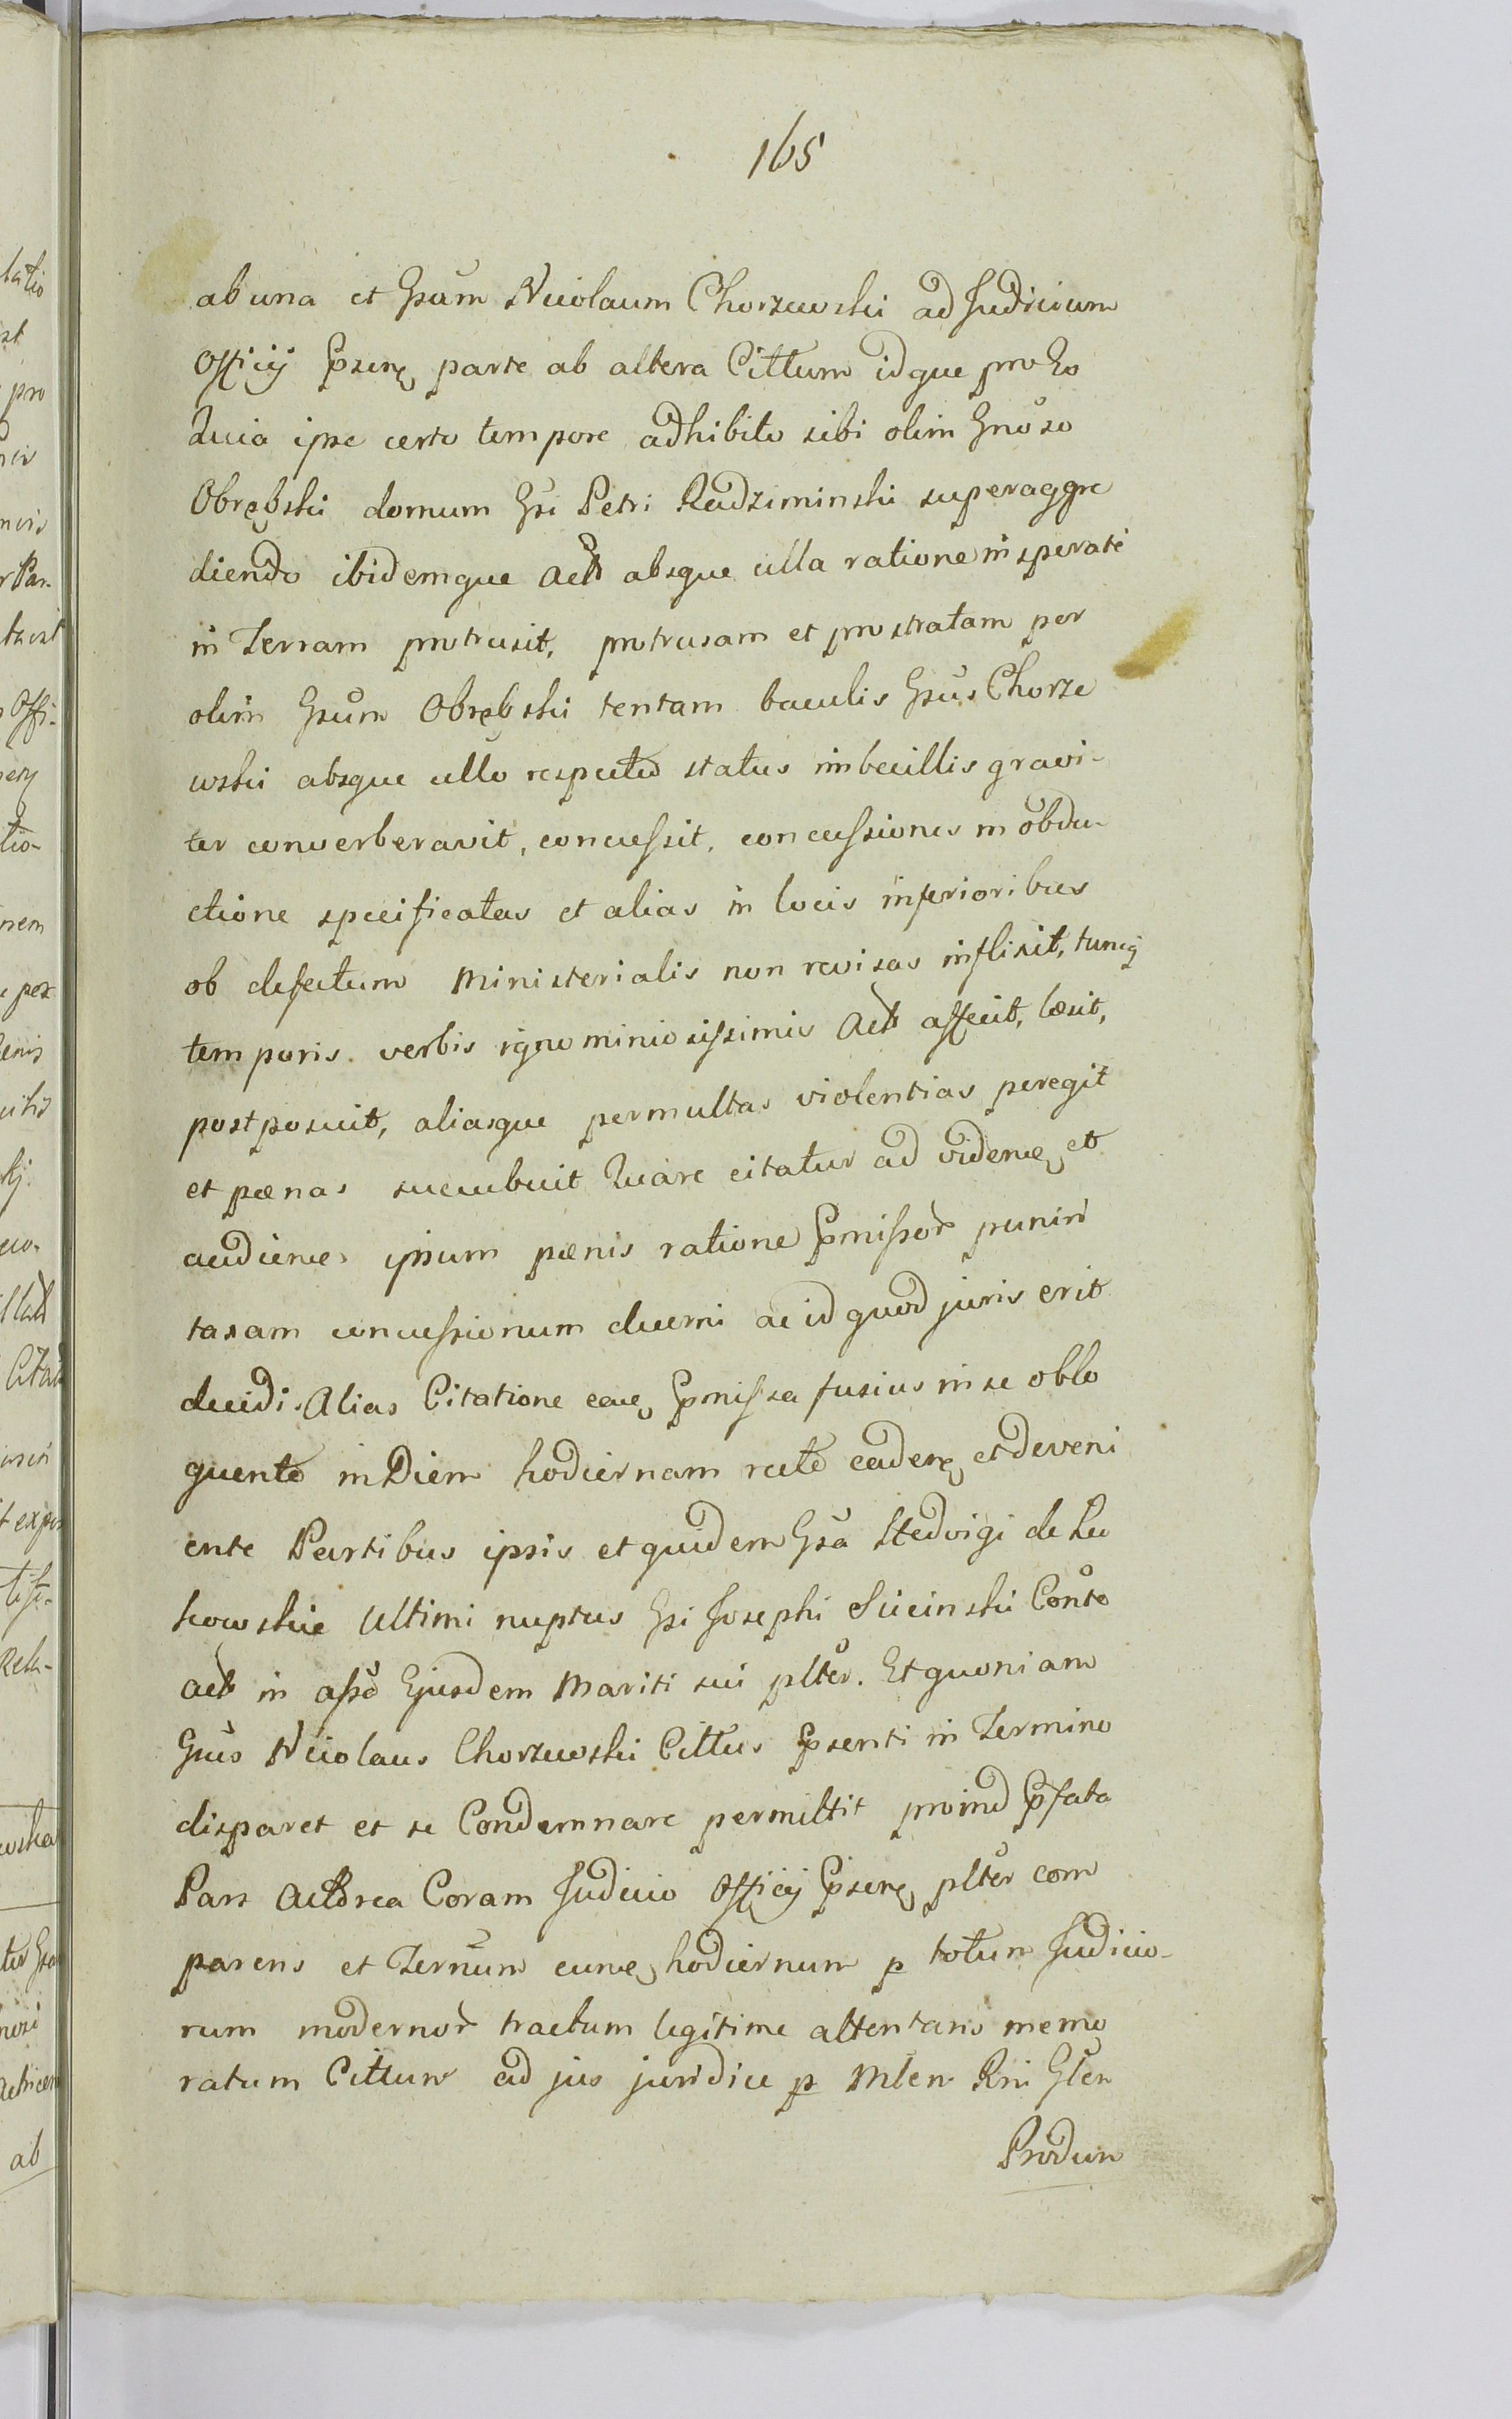 165
ab una et Gsum Nicolaum Chorzewski ad Judicium
Officij Psens parte ab altera Cittum idque pro Eo
Quia ipse certo tempore adhibito sibi olim Gnoso
Obrębski domum Gsi Petri Radziminski superaggre
diendo ibidemque Act absque ulla ratione insperate
in Terram protrusit, protrusam et prostratam per
olim Gsum Obrębski tentam baculis Gsus Chorze
wski absque ullo respectu status imbecillis gravi-
ter converberavit, concussit, concussiones in obdu-
ctione specificatas et alias in locis inferioribus
ob defectum Ministerialis non revisas inflixit, tuncq
temporis verbis ignominiosissimis Act affecit, læsit,
postposuit, aliasque permultas violentias peregit
et pænas sucubuit Quare citatur ad videnc et
audienc ipsum pænis ratione Pmissor puniri
taxam concussionum decerni ac id quod juris erit
decidi. Alias Citatione eac Pmissa fusius in se oblo
quente in Diem hodiernam recte caden et deveni
ente Partibus ipsis et quidem Gsa Hedvigi de Lu
kowskie Ultimi nuptus Gsi Josephi Sicinski Conte
act in assa Ejusdem Mariti sui plter. Et quoniam
Gsus Nicolaus Chorzewski Cittus Psenti in Termino
disparet et se Condemnare permittit proind Pfata
Pars Actorea Coram Judicio Officij Psens plter com
parens et Ternum eunc hodiernum p totum Judicio-
rum modernor tractum legitime attentans memo
ratum Cittum ad jus juridice p Mlem Rni Glen
Produm